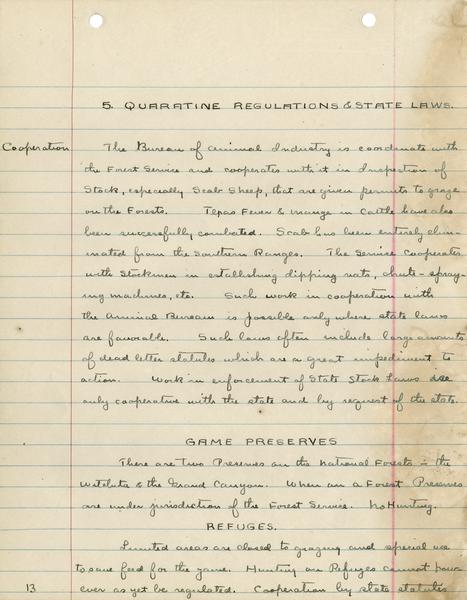 5. QUARATINE REGULATIONS & STATE LAWS.
Cooperation The Bureau of Animal Industry is coordinate with
the Forest Service and cooperates with it in Inspection of
Stock, especially Scab Sheep, that are given permits to graze
on the Forests. Texas Fever & mange in Cattle have also
been successfully combated. Scab has been entirely elim-
inated from the Southern Ranges. The Service cooperates
with Stockmen in establishing dipping vats, chute-spray-
ing machines, etc. Such work in cooperation with
the Animal Bureau is possible only where state laws
are favorable. Such laws often include large amounts
of dead letter statutes which are a great impediment to
action. Work in enforcement of State Stock Laws are
only cooperative with the state and by request of the state.
GAME PRESERVES
There are Two Preserves on the National Forests in the
& the Grand Canyon. When on a Forest Preserves
are under jurisdiction of the Forest Service. No Hunting.
REFUGES.
Limited areas are closed to grazing and special use
to save feed for the game. Hunting on Refuges cannot
ever as yet be regulated. Cooperation by state statutes
13